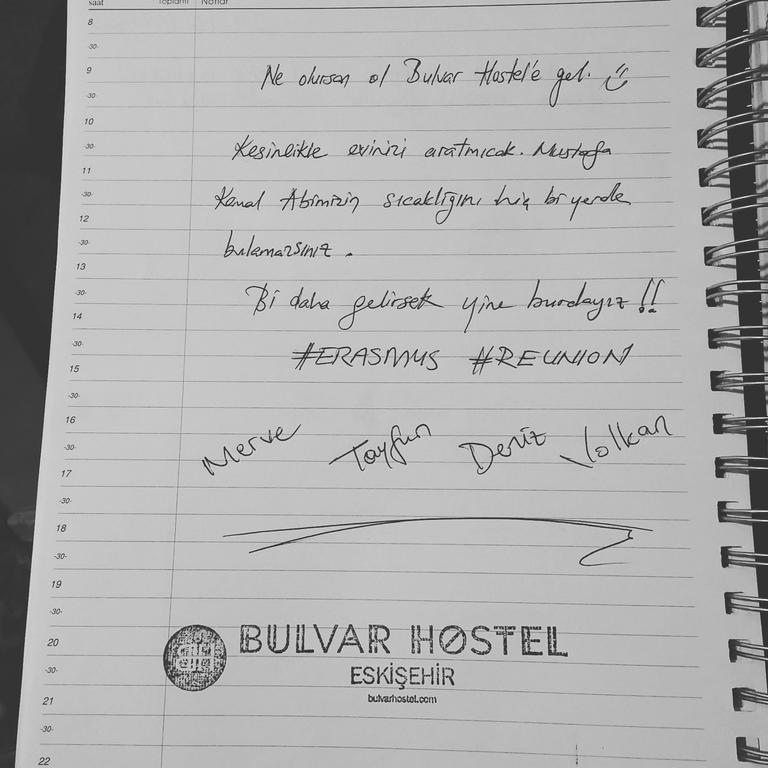 saat Toplantı Notlar
8
-30-
9
Ne olursan ol Bulvar Hostel'e gel.
-30-
10
-30-
Kesinlikle evinizi aratmıcak. Mustafa
11
-30-
Kemal Abimizin sıcaklığını hiç bi yerde
12
-30-
bulamazsınız.
13
-30-
Bi daha gelirsek yine burdayız!!
14
-30-
#ERASMUS #REUNION
15
-30-
16
Merve Tayfun Deniz Volkan
-30-
17
-30-
18
-30-
19
-30-
20
BULVAR HOSTEL
-30-
ESKİŞEHİR
21
bulvarhostel.com
-30-
22